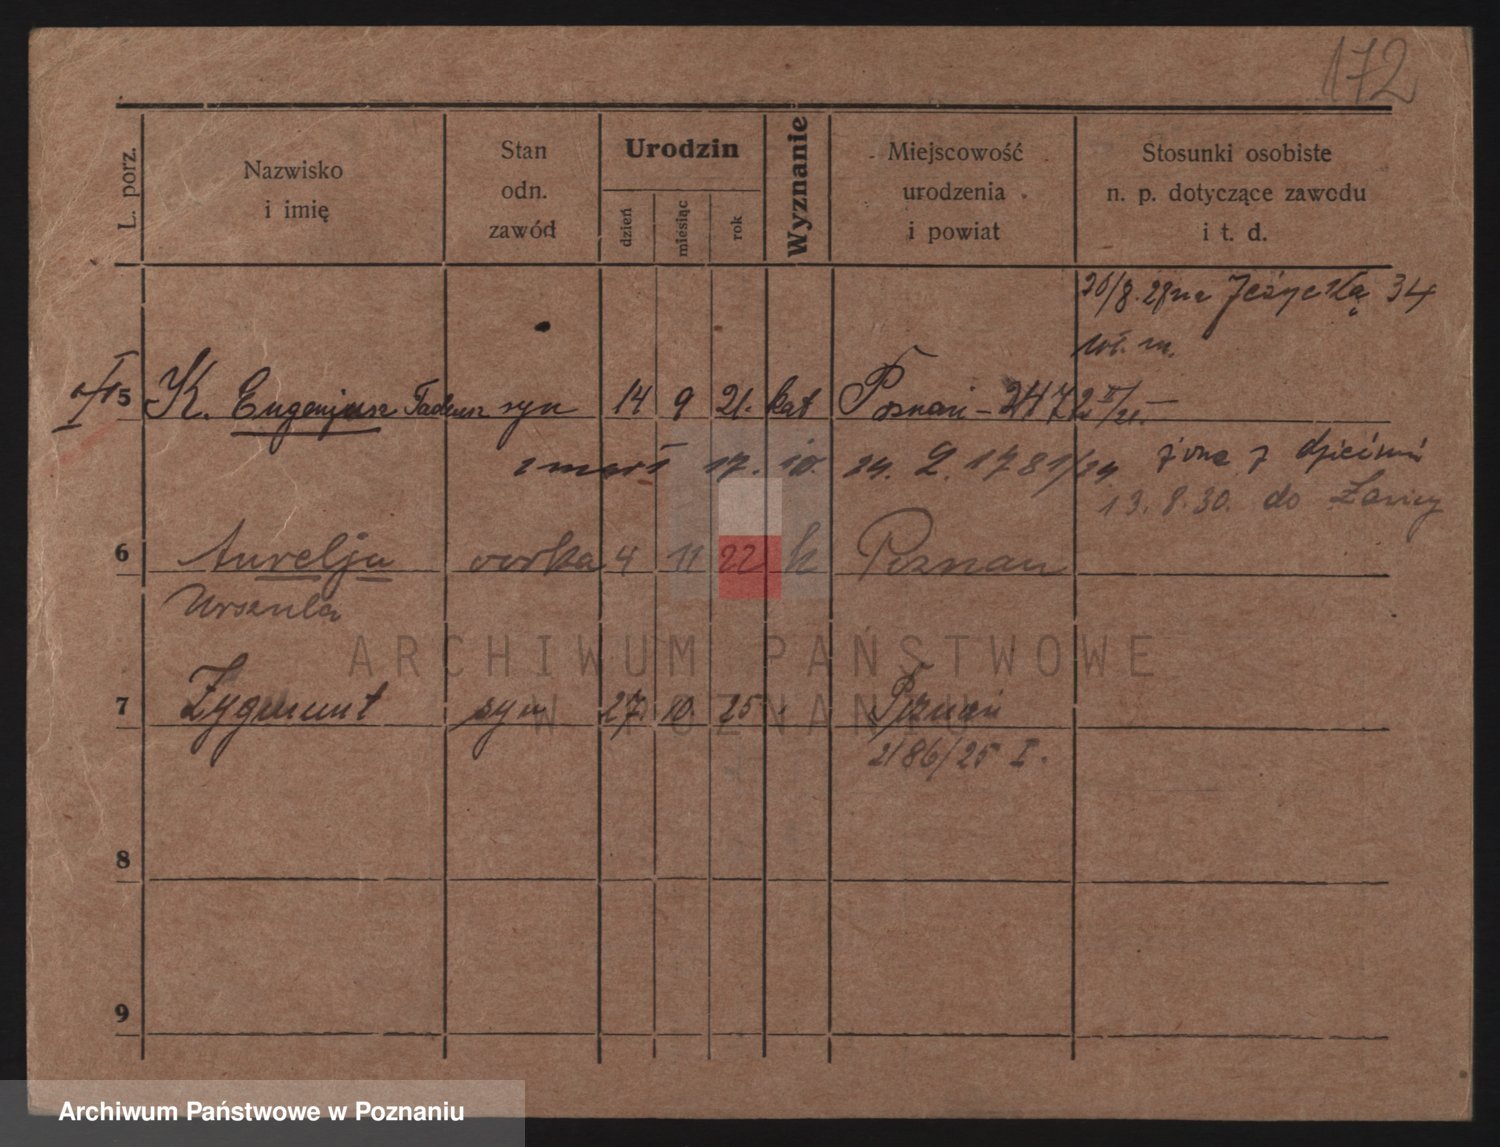 172
L. porz.
Nazwisko
i imię
Stan
odn.
zawód
Urodzin
dzień
miesiąc
rok
Wyznanie
Miejscowość
urodzenia
i powiat
Stosunki osobiste
n. p. dotyczące zawodu
i t. d.
20/8. 28 na Jeżycką 34
5 K. Eugenjusz Tadeusz syn 14 9 21. kat Poznań - 2472
zmarł 17. 10. 24. 2. 1781/24 żona z dziećmi
13. 8. 30. do Ławicy
6 Aurelja córka 4 11 22 k Poznań
Urszula
ARCHIWUM PAŃSTWOWE
W POZNANIU
7 Zygmunt syn 27. 10. 25 Poznań
2186/25 I.
8
9
Archiwum Państwowe w Poznaniu